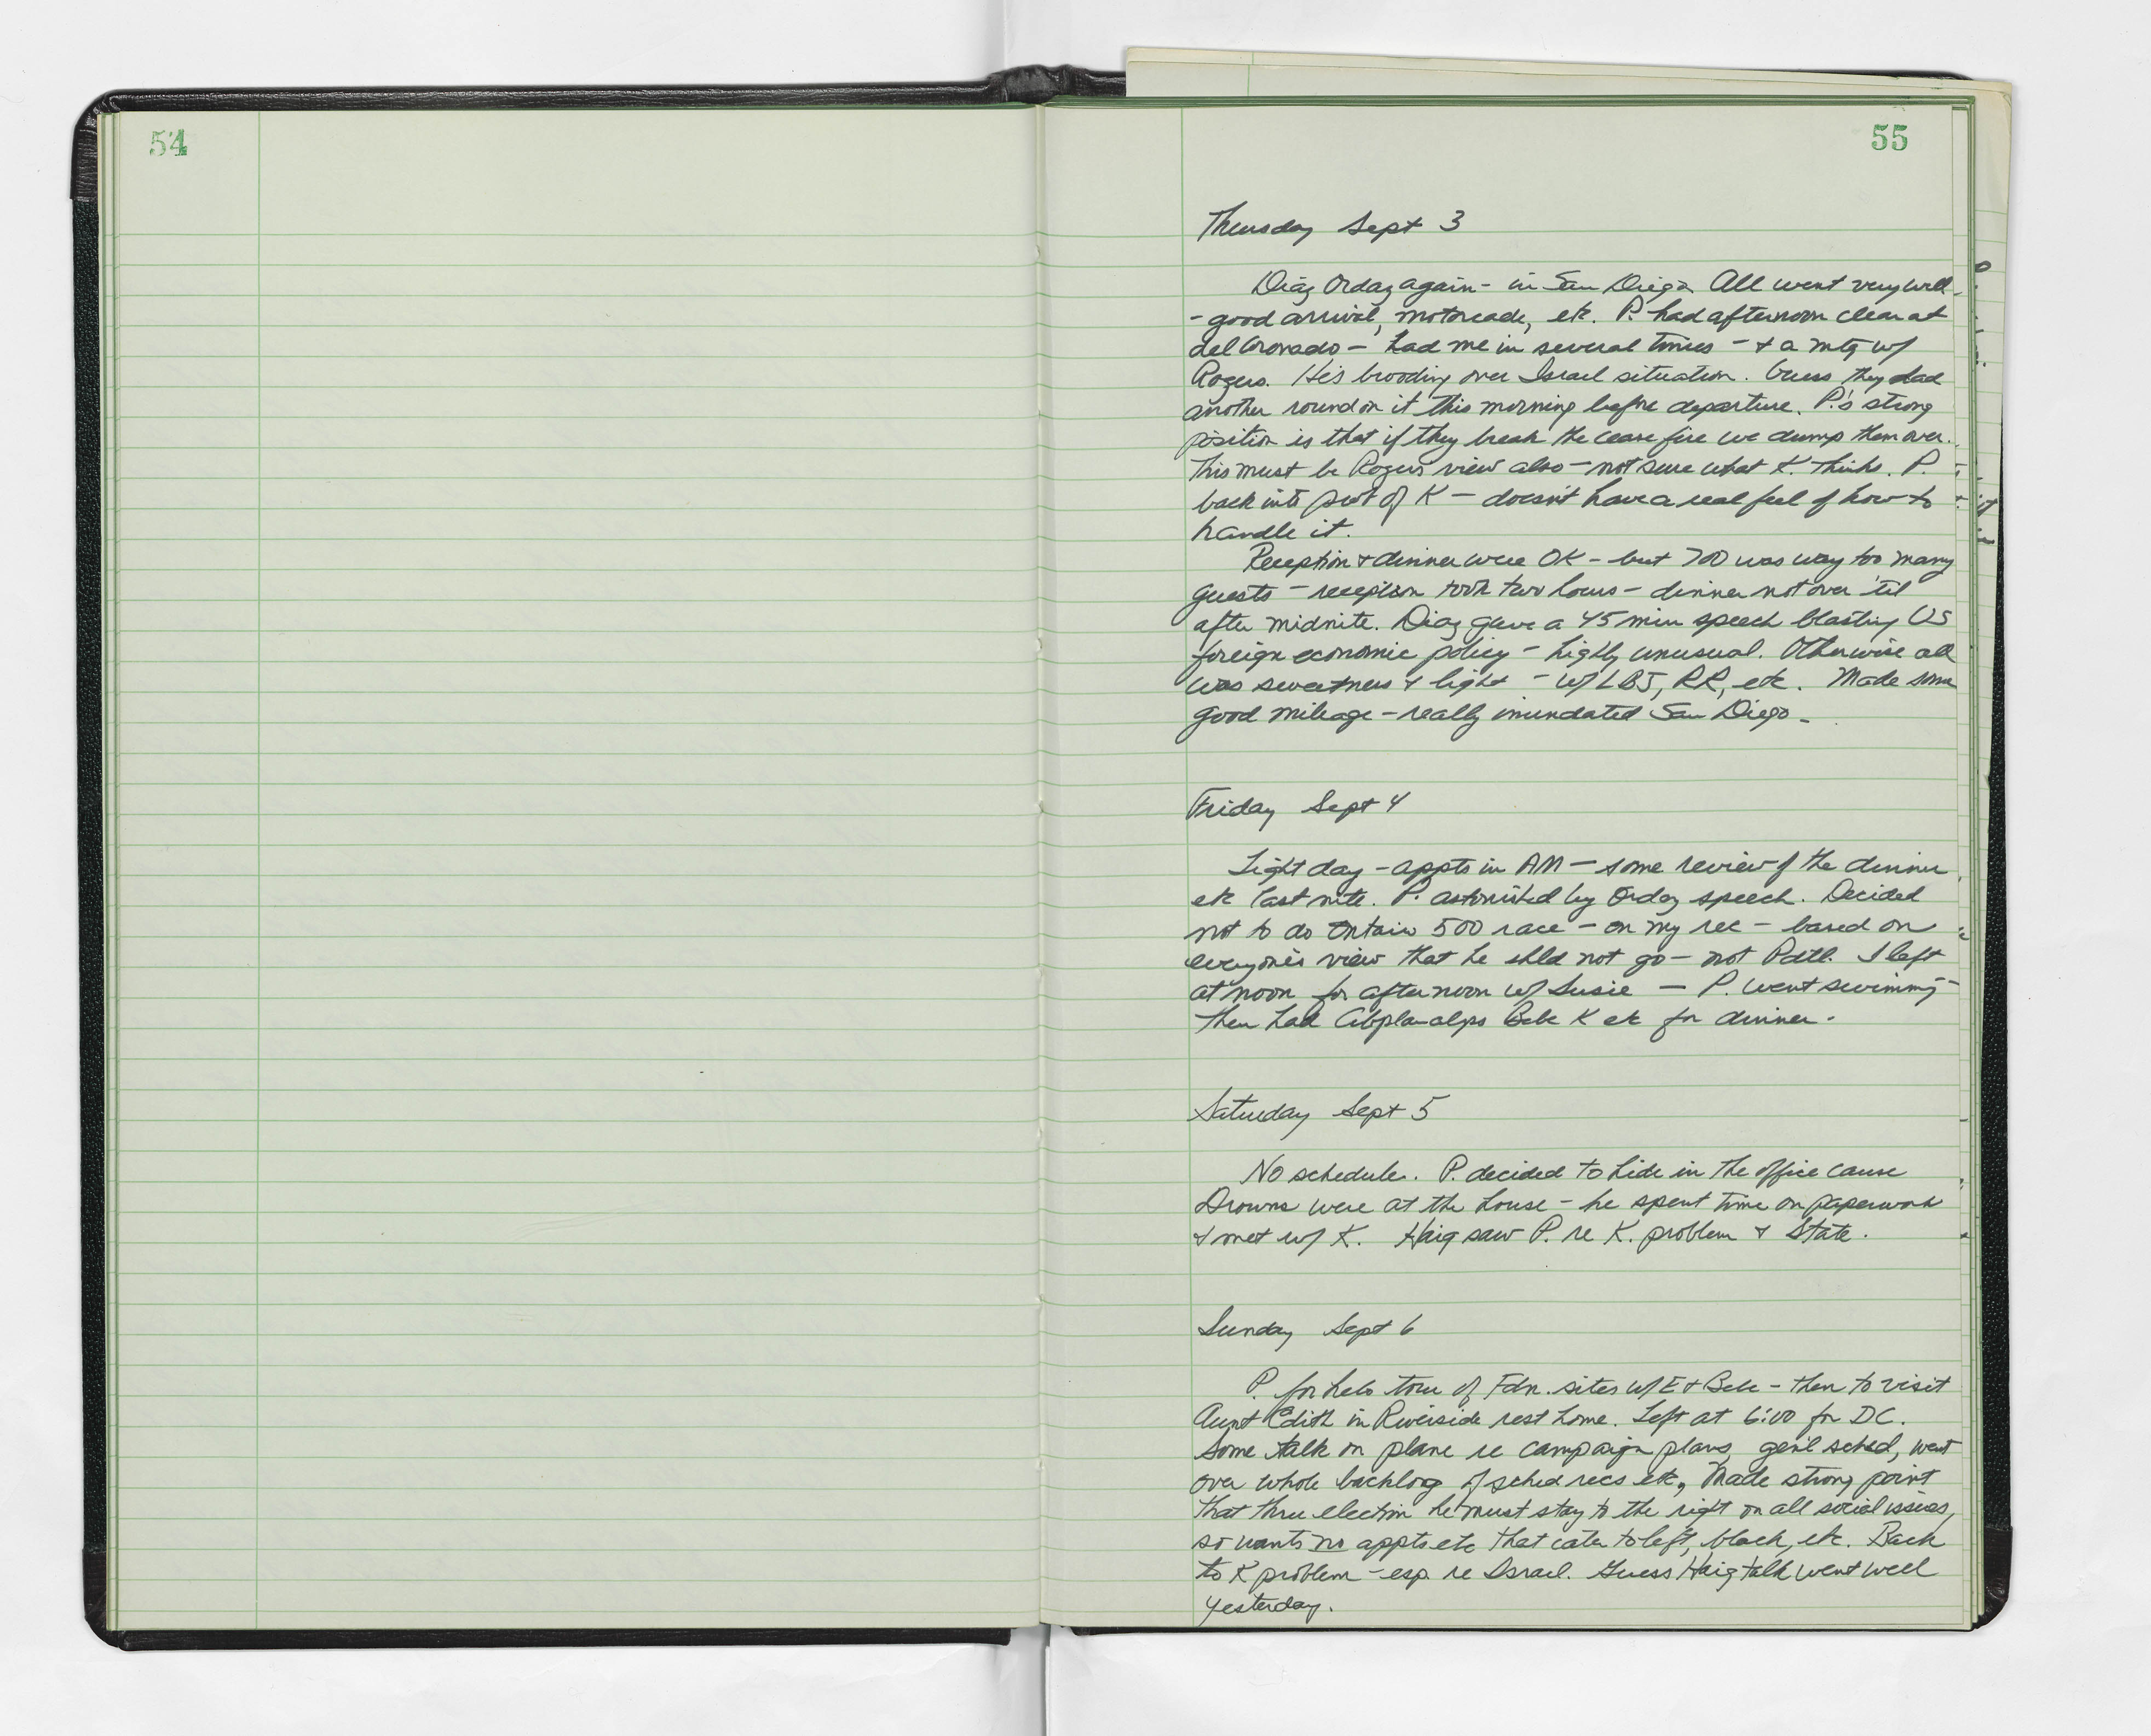 54
55
Thursday Sept 3
Diaz Ordaz again - in San Diego. All went very well -
- good arrival, motorcade, etc. P. had afternoon clear at
del Coronado - had me in several times - & a mtg w/
Rogers. He's brooding over Israel situation. Guess they had
another round on it this morning before departure. P.'s strong
position is that if they break the cease fire we dump them over.
This must be Rogers view also - not sure what K. thinks. P.
back into prob of K - doesn't have a real feel of how to
handle it.
Reception & dinner were OK - but 700 was way too many
guests - reception took two hours - dinner not over 'til
after midnite. Diaz gave a 45 min speech blasting US
foreign economic policy - highly unusual. Otherwise all
was sweetness & light - w/ LBJ, RR, etc. Made some
good mileage - really inundated San Diego -
Friday Sept 4
Light day - appts in AM - some review of the dinner
etc last nite. P. astonished by Ordaz speech. Decided
not to do Ontario 500 race - on my rec - based on
everyone's view that he shld not go - not Pdtl. I left
at noon for afternoon w/ Susie - P. went swimming -
then had Abplanalps Bebe K etc for dinner.
Saturday Sept 5
No schedule. P. decided to hide in the office cause
Drowns were at the house - he spent time on paperwork
& met w/ K. Haig saw P. re K. problem & State.
Sunday Sept 6
P. for helo tour of Fdn. sites w/ E & Bebe - then to visit
Aunt Edith in Riverside rest home. Left at 6:00 for DC.
Some talk on plane re campaign plans, gen'l sched, went
over whole backlog of sched recs etc, Made strong point
that thru election he must stay to the right on all social issues,
so wants no appts etc that cater to left, black, etc. Back
to K problem - esp. re Israel. Guess Haig talk went well
yesterday.